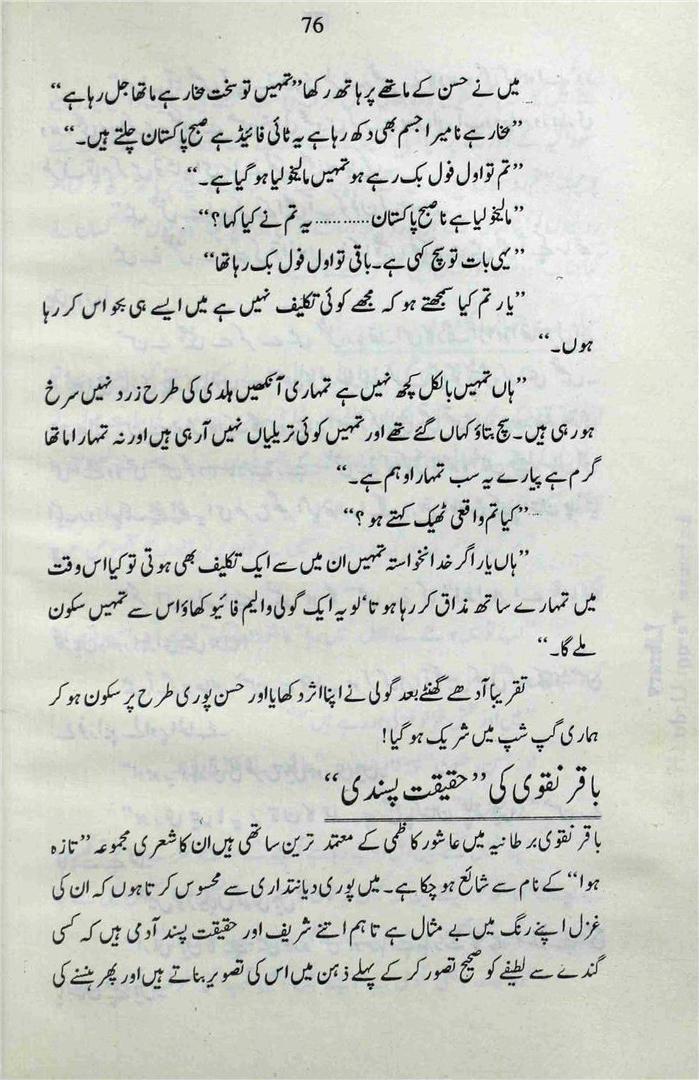 76
میں نے حسن کے ماتھے پر ہاتھ رکھا ”تمہیں تو سخت بخار ہے ماتھا جل رہا ہے“
”بخار ہے نا میرا جسم بھی دکھ رہا ہے یہ ٹائی فائیڈ ہے صبح پاکستان چلتے ہیں۔“
”تم تو اول فول بک رہے ہو تمہیں مالیخولیا ہو گیا ہے۔“
”مالیخولیا ہے نا صبح پاکستان............ یہ تم نے کیا کہا؟“
”یہی بات تو سچ کہی ہے۔ باقی تو اول فول بک رہا تھا“
”یار تم کیا سمجھتے ہو کہ مجھے کوئی تکلیف نہیں ہے میں ایسے ہی بکواس کر رہا
ہوں۔“
”ہاں تمہیں بالکل کچھ نہیں ہے تمہاری آنکھیں ہلدی کی طرح زرد نہیں سرخ
ہو رہی ہیں۔ سچ بتاؤ کہاں گئے تھے اور تمہیں کوئی تریلیاں نہیں آ رہی ہیں اور نہ تمہارا ماتھا
گرم ہے پیارے یہ سب تمہارا وہم ہے۔“
”کیا تم واقعی ٹھیک کہتے ہو؟“
”ہاں یار اگر خدانخواستہ تمہیں ان میں سے ایک تکلیف بھی ہوتی تو کیا اس وقت
میں تمہارے ساتھ مذاق کر رہا ہوتا‘ لو یہ ایک گولی والیم فائیو کھاؤ اس سے تمہیں سکون
ملے گا۔“
تقریبا آدھے گھنٹے بعد گولی نے اپنا اثر دکھایا اور حسن پوری طرح پر سکون ہو کر
ہماری گپ شپ میں شریک ہو گیا!
باقر نقوی کی ”حقیقت پسندی“
باقر نقوی برطانیہ میں عاشور کاظمی کے معتمد ترین ساتھی ہیں ان کا شعری مجموعہ ”تازہ
ہوا“ کے نام سے شائع ہو چکا ہے۔ میں پوری دیانتداری سے محسوس کرتا ہوں کہ ان کی
غزل اپنے رنگ میں بے مثال ہے تاہم اتنے شریف اور حقیقت پسند آدمی ہیں کہ کسی
گندے سے لطیفے کو صحیح تصور کر کے پہلے ذہن میں اس کی تصویر بناتے ہیں اور پھر ہنسنے کی